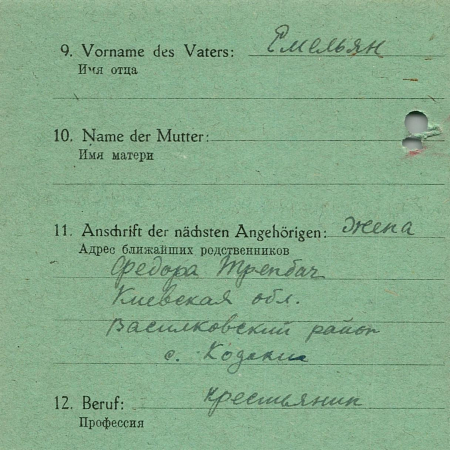 9. Vorname des Vaters: Емельян
Имя отца
10. Name der Mutter:
Имя матери
11. Anschrift der nächsten Angehörigen: жена
Адрес ближайших родственников
Федора
Киевская обл.
Василковский район
с. Кодаки
12. Beruf: крестьянин
Профессия